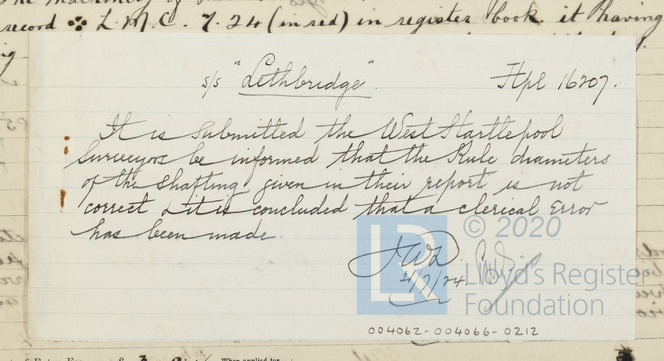 record ⁘ L.M.C. 7.24 (in red) in register book it having
s/s "Lethbridge". Hpl 16207.
It is submitted the West Hartlepool
Surveyors be informed that the Rule diameters
of the shafting given in their report is not
correct & it is concluded that a clerical error
has been made.
JWD
21/7/24
© 2020
Lloyd's Register
Foundation
004062-004066-0212